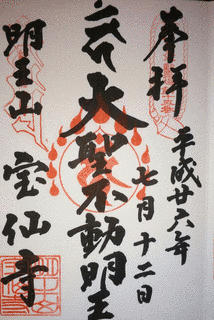 奉拝
平成廿六年
七月十二日
大聖不動明王
明王山
宝仙寺